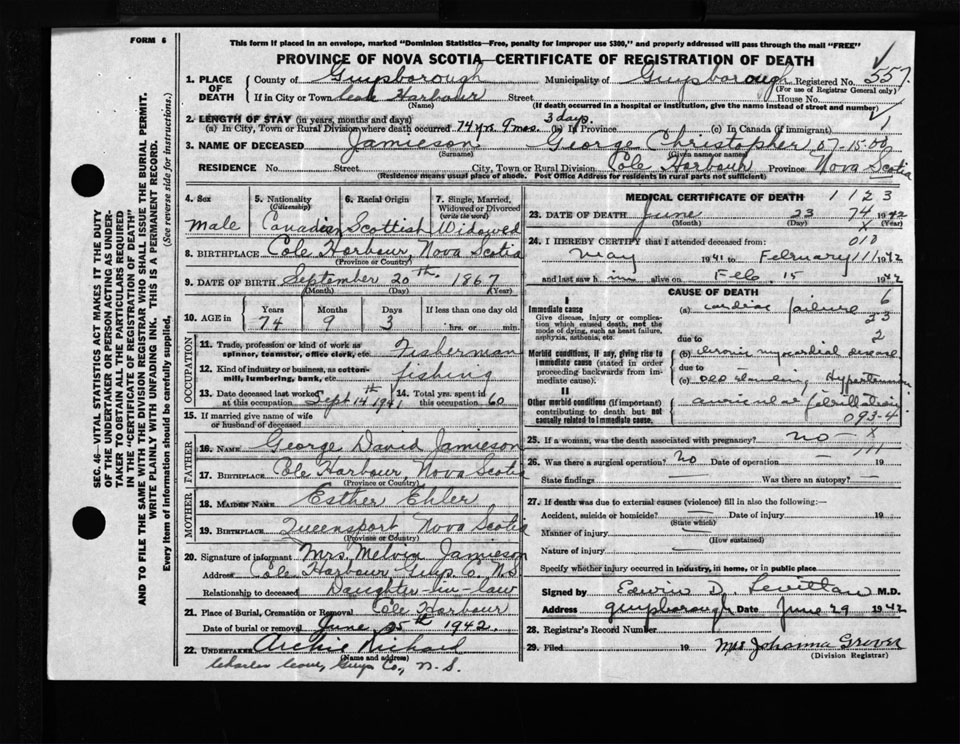 FORM 6
This form if placed in an envelope, marked "Dominion Statistics—Free, penalty for improper use $300," and properly addressed will pass through the mail "FREE"
PROVINCE OF NOVA SCOTIA—CERTIFICATE OF REGISTRATION OF DEATH
SEC. 46—VITAL STATISTICS ACT MAKES IT THE DUTY
OF THE UNDERTAKER OR PERSON ACTING AS UNDER-
TAKER TO OBTAIN ALL THE PARTICULARS REQUIRED
IN THE "CERTIFICATE OF REGISTRATION OF DEATH"
AND TO FILE THE SAME WITH THE DIVISION REGISTRAR WHO SHALL ISSUE THE BURIAL PERMIT.
WRITE PLAINLY WITH UNFADING INK. THIS IS A PERMANENT RECORD.
Every item of information should be carefully supplied. (See reverse side for instructions.)
1. PLACE OF DEATH County of Guysborough Municipality of Guysborough Registered No. 557
(For use of Registrar General only)
If in City or Town Cole Harbour Street House No.
(Name) (If death occurred in a hospital or institution, give the name instead of street and number)
2. LENGTH OF STAY (in years, months and days)
(a) In City, Town or Rural Division where death occurred 74 yrs. 9 mos. 3 days. (b) In Province (c) In Canada (if immigrant)
3. NAME OF DECEASED Jamieson George Christopher 07-15-00
(Surname) (Given name or names)
RESIDENCE No. Street City, Town or Rural Division Cole Harbour Province Nova Scotia
(Residence means usual place of abode. Post Office Address for residents in rural parts not sufficient)
4. Sex 5. Nationality (Citizenship) 6. Racial Origin 7. Single, Married, Widowed or Divorced (write the word)
Male Canadian Scottish Widowed
8. BIRTHPLACE Cole Harbour, Nova Scotia
(Province or Country)
9. DATE OF BIRTH September 20th 1867
(Month) (Day) (Year)
10. AGE in Years Months Days If less than one day old
74 9 3 hrs. or min.
OCCUPATION
11. Trade, profession or kind of work as spinner, teamster, office clerk, etc. Fisherman
12. Kind of industry or business, as cotton-mill, lumbering, bank, etc. fishing
13. Date deceased last worked at this occupation Sept 14th 1941 14. Total yrs. spent in this occupation 60
15. If married give name of wife or husband of deceased
FATHER
16. NAME George David Jamieson
17. BIRTHPLACE Cole Harbour, Nova Scotia
(Province or Country)
MOTHER
18. MAIDEN NAME Esther Ehler
19. BIRTHPLACE Queensport, Nova Scotia
(Province or Country)
20. Signature of informant Mrs. Melvin Jamieson
Address Cole Harbour Guys. Co. N.S.
Relationship to deceased Daughter-in-law
21. Place of Burial, Cremation or Removal Cole Harbour
Date of burial or removal June 25th 1942.
22. UNDERTAKER Archie Richard
(Name and address)
Charlos Cove, Guys Co, N.S.
MEDICAL CERTIFICATE OF DEATH 1 1 2 3
23. DATE OF DEATH June 23 74 1942
(Month) (Day) (Year)
24. I HEREBY CERTIFY that I attended deceased from: 010
May 1941 to February 11 1942
and last saw him alive on Feb. 15 1942
CAUSE OF DEATH 6
I
Immediate cause (a) cardiac failure 23
Give disease, injury or complication which caused death, not the mode of dying, such as heart failure, asphyxia, asthenia, etc.
due to 2
Morbid conditions, if any, giving rise to immediate cause (stated in order proceeding backwards from immediate cause).
(b) chronic myocardial disease
due to
(c) old standing Hypertension
II
Other morbid conditions (if important) contributing to death but not causally related to immediate cause.
auricular fibrillation
093-4
25. If a woman, was the death associated with pregnancy? no — X
26. Was there a surgical operation? no Date of operation 19
State findings Was there an autopsy?
27. If death was due to external causes (violence) fill in also the following:—
Accident, suicide or homicide? Date of injury 19
(State which)
Manner of injury
(How sustained)
Nature of injury
Specify whether injury occurred in industry, in home, or in public place
Signed by Edwin D. Levitan M.D.
Address Guysborough Date June 29 1942
28. Registrar's Record Number
29. Filed 19 Mrs Johanna Grover
(Division Registrar)